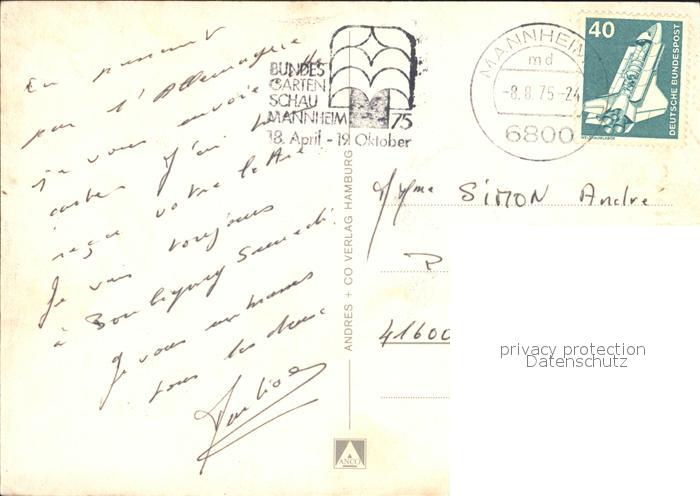 En passant
par l'Allemagne
je vous envoie
cartes j'ai
reçu votre lettre
Je vais toujours
à samedi
Je vous embrasse
tous les deux
BUNDES
GARTEN
SCHAU
MANNHEIM 75
18. April - 19. Oktober
MANNHEIM
md
-8.8.75-24
6800
40
DEUTSCHE BUNDESPOST
WELTRAUMLABOR
ANDRES + CO VERLAG HAMBURG
ANCO
SIMON André
R
41600
privacy protection
Datenschutz